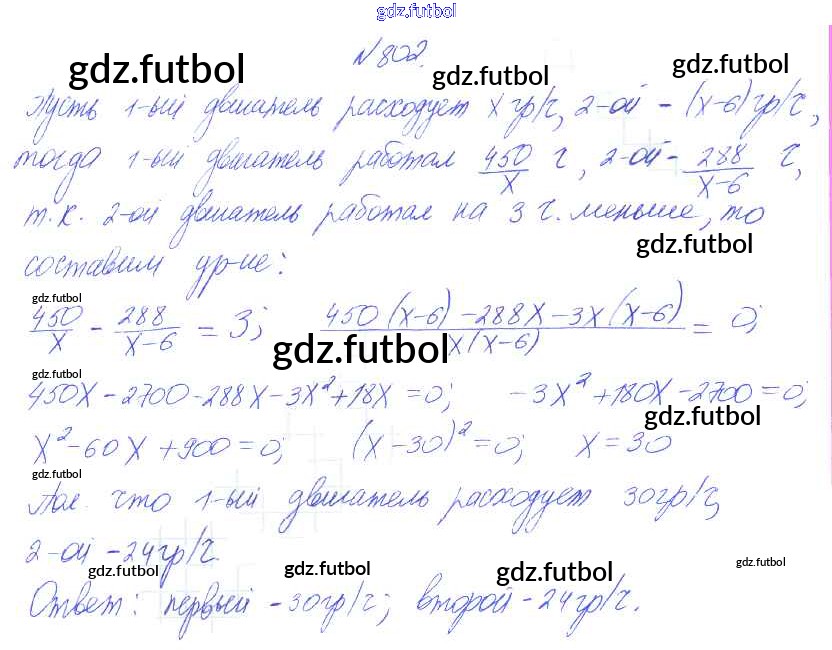 gdz.futbol
№802.
gdz.futbol gdz.futbol gdz.futbol
Пусть 1-ый двигатель расходует x гр/ч, 2-ой - (x-6) гр/ч,
тогда 1-ый двигатель работал 450/x ч, 2-ой - 288/x-6 ч,
т.к. 2-ой двигатель работал на 3 ч. меньше, то
gdz.futbol
составим ур-ие:
gdz.futbol
450/x - 288/x-6 = 3; 450(x-6)-288x-3x(x-6)/x(x-6) = 0;
gdz.futbol
gdz.futbol
450x-2700-288x-3x²+18x=0; -3x²+180x-2700=0;
gdz.futbol
x²-60x+900=0; (x-30)²=0; x=30
gdz.futbol
Пол. что 1-ый двигатель расходует 30гр/ч,
2-ой -24гр/ч.
gdz.futbol gdz.futbol gdz.futbol gdz.futbol
Ответ: первый -30гр/ч; второй -24гр/ч.